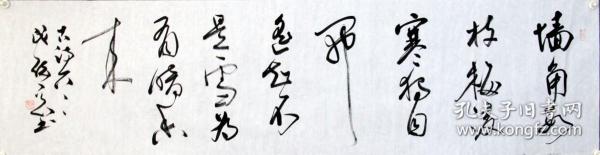 墙角数
枝梅凌
寒独自
开
遥知不
是雪为
有暗香
来
孔夫子旧书网
www.kongfz.com